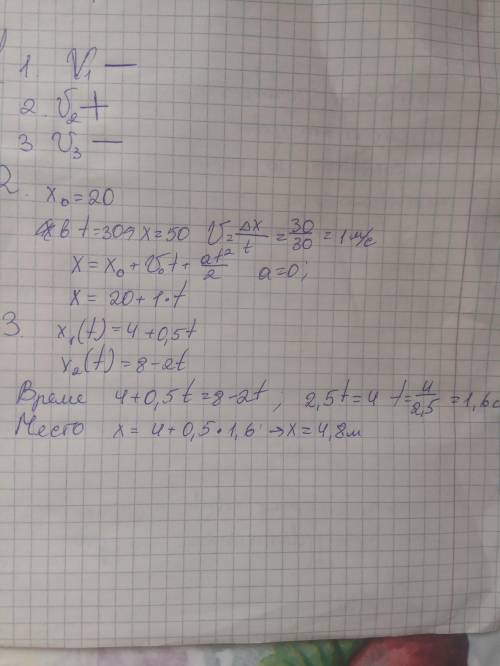 1. V₁ —
2. V₂ +
3 V₃ —
2. x₀ = 20
в t = 30 → x = 50 V = Δx/t = 30/30 = 1 м/с
x = x₀ + V₀t + at²/2 a = 0;
x = 20 + 1·t
3. x₁(t) = 4 + 0,5t
x₂(t) = 8 - 2t
Време 4 + 0,5t = 8 - 2t, 2,5t = 4 t = 4/2,5 = 1,6с
Место x = 4 + 0,5·1,6 → x = 4,8м